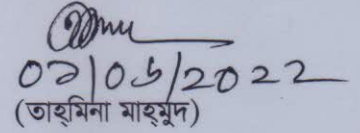 ০৯/০৬/2022
(তাহমিনা মাহমুদ)